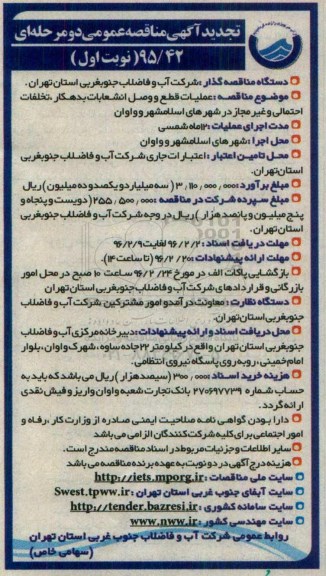 تجدید آگهی مناقصه عمومی دو مرحله ای
۹۵/۴۲ (نوبت اول)
دستگاه مناقصه گذار: شرکت آب و فاضلاب جنوبغربی استان تهران.
موضوع مناقصه: عملیات قطع و وصل انشعابات بدهکار، تخلفات
احتمالی و غیر مجاز در شهرهای اسلامشهر و واوان
مدت اجرای عملیات: ۱۲ماه شمسی
محل اجرا: شهرهای اسلامشهر و واوان
محل تامین اعتبار: اعتبارات جاری شرکت آب و فاضلاب جنوبغربی
استان تهران.
مبلغ برآورد: ۳,۱۱۰,۰۰۰,۰۰۰ (سه میلیارد و یکصد و ده میلیون) ریال
مبلغ سپرده شرکت در مناقصه: ۲۵۵,۵۰۰,۰۰۰ (دویست و پنجاه و
پنج میلیون و پانصد هزار) ریال در وجه شرکت آب و فاضلاب جنوبغربی
استان تهران.
مهلت دریافت اسناد: ۹۶/۲/۲ لغایت ۹۶/۲/۹
مهلت ارائه پیشنهادات: ۹۶/۲/۲۰ (تا ساعت ۱۴).
بازگشایی پاکات الف در مورخ ۹۶/۲/۲۴ ساعت ۱۰ صبح در محل امور
بازرگانی و قراردادهای شرکت آب و فاضلاب جنوبغربی استان تهران
دستگاه نظارت: معاونت درآمد و امور مشترکین شرکت آب و فاضلاب
جنوبغربی استان تهران.
محل دریافت اسناد و ارائه پیشنهادات: دبیرخانه مرکزی آب و فاضلاب
جنوبغربی استان تهران واقع در کیلومتر ۲۲ جاده ساوه، شهرک واوان، بلوار
امام خمینی، روبه روی پاسگاه نیروی انتظامی.
هزینه خرید اسناد: ۳۰۰,۰۰۰ (سیصد هزار) ریال می باشد که باید به
حساب شماره ۲۷۰۶۹۷۷۳۹ بانک تجارت شعبه واوان واریز و فیش نقدی
ارائه گردد.
دارا بودن گواهی نامه صلاحیت ایمنی صادره از وزارت کار، رفاه و
امور اجتماعی برای کلیه شرکت کنندگان الزامی می باشد
سایر اطلاعات و جزئیات مربوط در اسناد مناقصه مندرج است.
هزینه درج آگهی در دو نوبت به عهده برنده مناقصه می باشد
سایت ملی مناقصات: http://iets.mporg.ir
سایت آبفای جنوب غربی استان تهران: Swest.tpww.ir
سایت سامانه کشوری: http://tender.bazresi.ir
سایت مهندسی کشور: www.nww.ir
روابط عمومی شرکت آب و فاضلاب جنوب غربی استان تهران
(سهامی خاص)